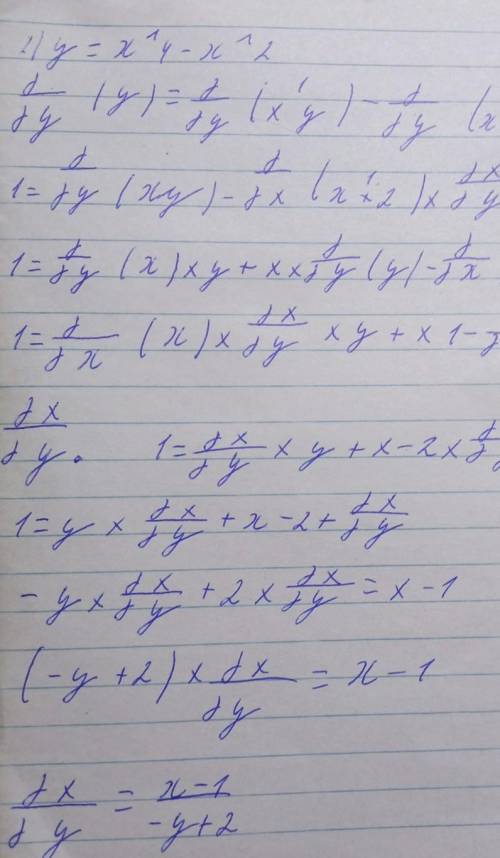 2) y = x^4 - x^2
d/dy (y) = d/dy (x'y) - d/dy (x
1 = d/dy (xy) - d/dx (x'×2) × dx/dy
1 = d/dy (x) × y + x × d/dy (y) - d/dx
1 = d/dx (x) × dx/dy × y + x 1 -
dx/dy. 1 = dx/dy × y + x - 2 × d/d
1 = y × dx/dy + x - 2 + dx/dy
- y × dx/dy + 2 × dx/dy = x - 1
(-y + 2) × dx/dy = x - 1
dx/dy = x-1/-y+2